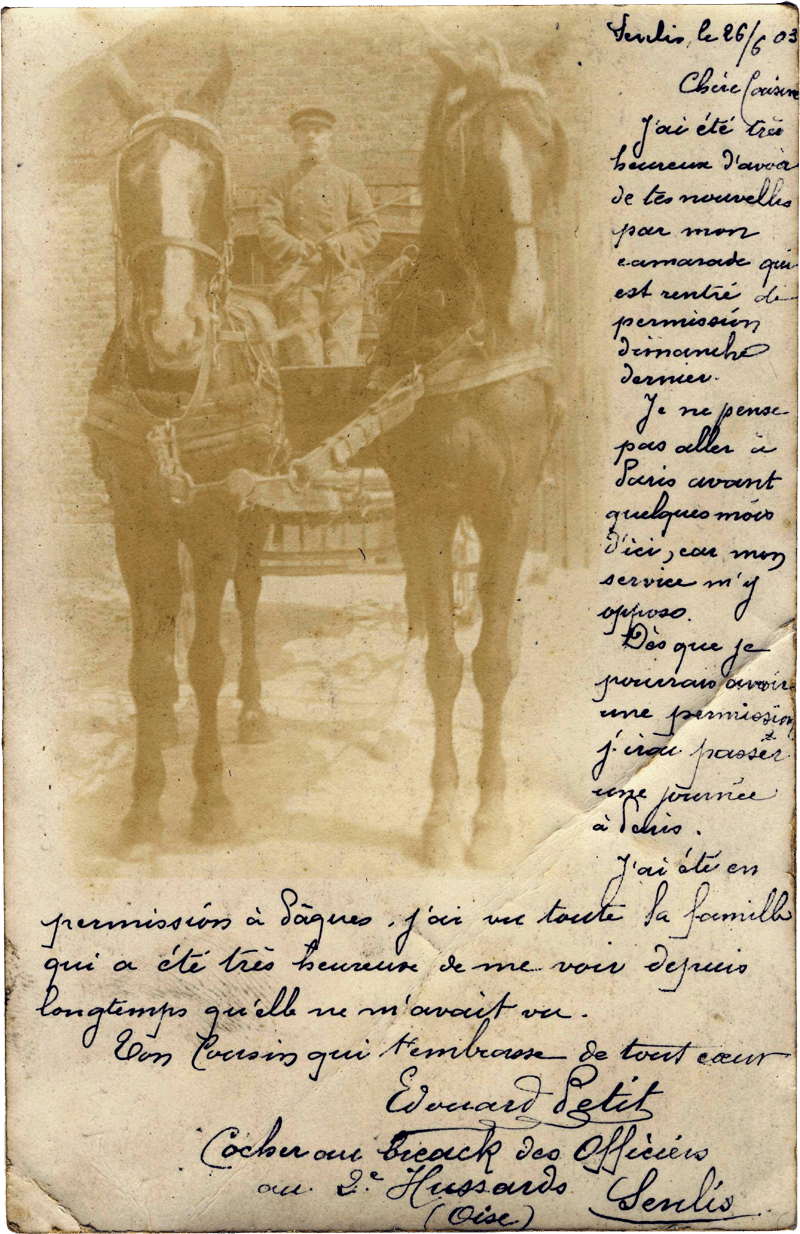 Senlis, le 26/6 03
Chère Cousine
J'ai été très
heureux d'avoir
de tes nouvelles
par mon
camarade qui
est rentré de
permission
dimanche
dernier.
Je ne pense
pas aller à
Paris avant
quelques mois
d'ici, car mon
service m'y
oppose.
Dès que je
pourrais avoir
une permission
j'irai passer
une journée
à Paris.
J'ai été en
permission à Pâques, j'ai vu toute la famille
qui a été très heureuse de me voir depuis
longtemps qu'elle ne m'avait vu.
Ton Cousin qui t'embrasse de tout cœur
Edouard Petit
Cocher au break des Officiers
au 2e Hussards Senlis
(Oise)